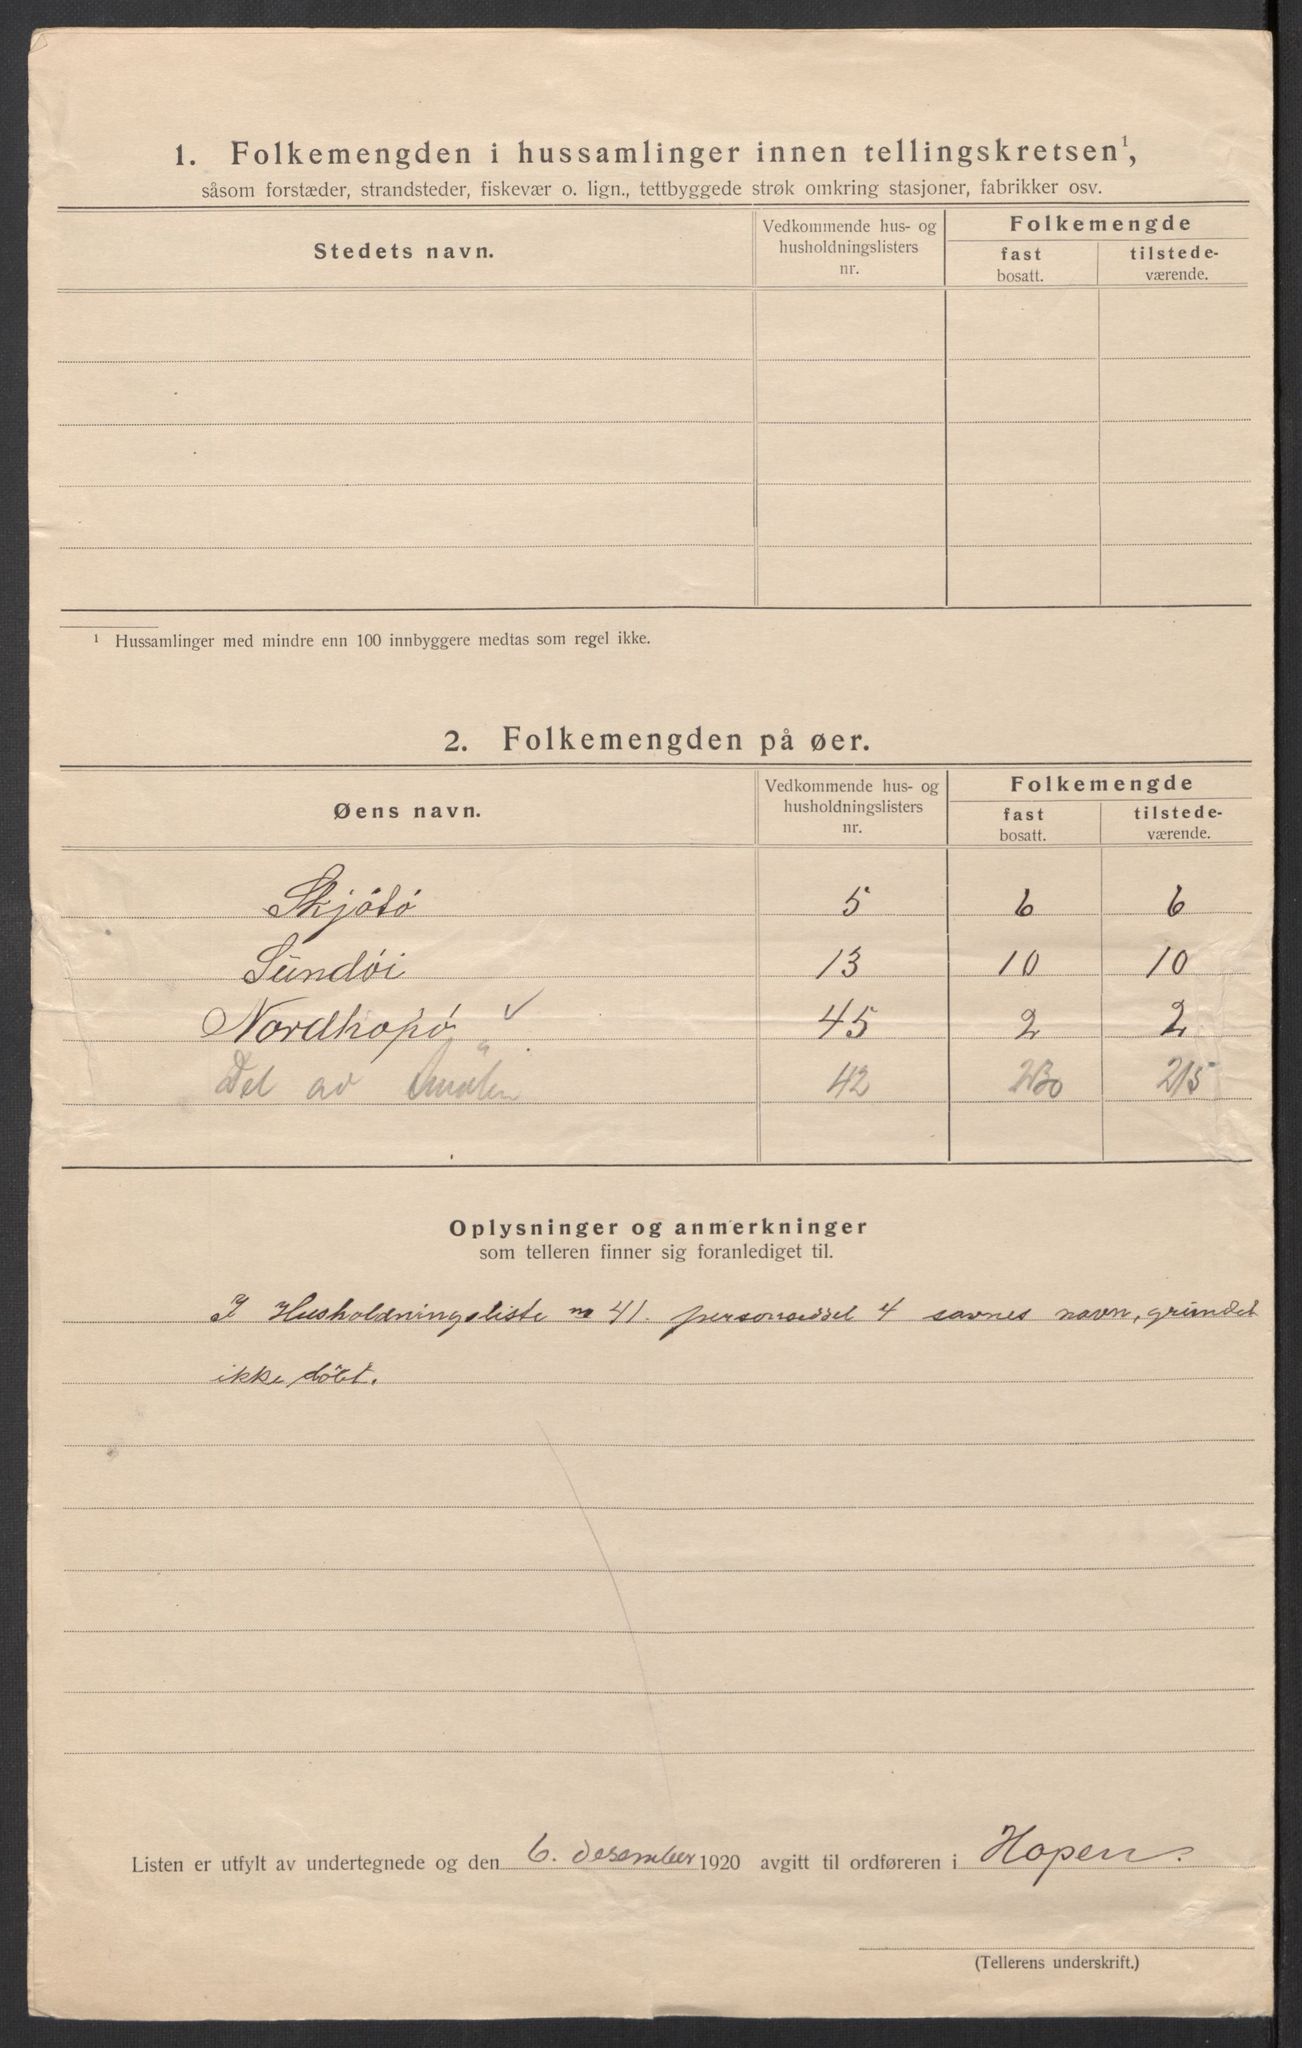 1. Folkemengden i hussamlinger innen tellingskretsen¹,
såsom forstæder, strandsteder, fiskevær o. lign., tettbyggede strøk omkring stasjoner, fabrikker osv.
Stedets navn.
Vedkommende hus- og
husholdningslisters
nr.
Folkemengde
fast
bosatt.
tilstede-
værende.
¹ Hussamlinger med mindre enn 100 innbyggere medtas som regel ikke.
2. Folkemengden på øer.
Øens navn.
Vedkommende hus- og
husholdningslisters
nr.
Folkemengde
fast
bosatt.
tilstede-
værende.
Skjölö 5 6 6
Sundøi 13 10 10
Nordhopø ✓ 45 2 2
Del av Smølen 42 230 215
Oplysninger og anmerkninger
som telleren finner sig foranlediget til.
I Husholdningsliste no 41. personseddel 4 savnes navn, grundet
ikke döbt.
Listen er utfylt av undertegnede og den 6. desember 1920 avgitt til ordføreren i Hopen.
(Tellerens underskrift.)